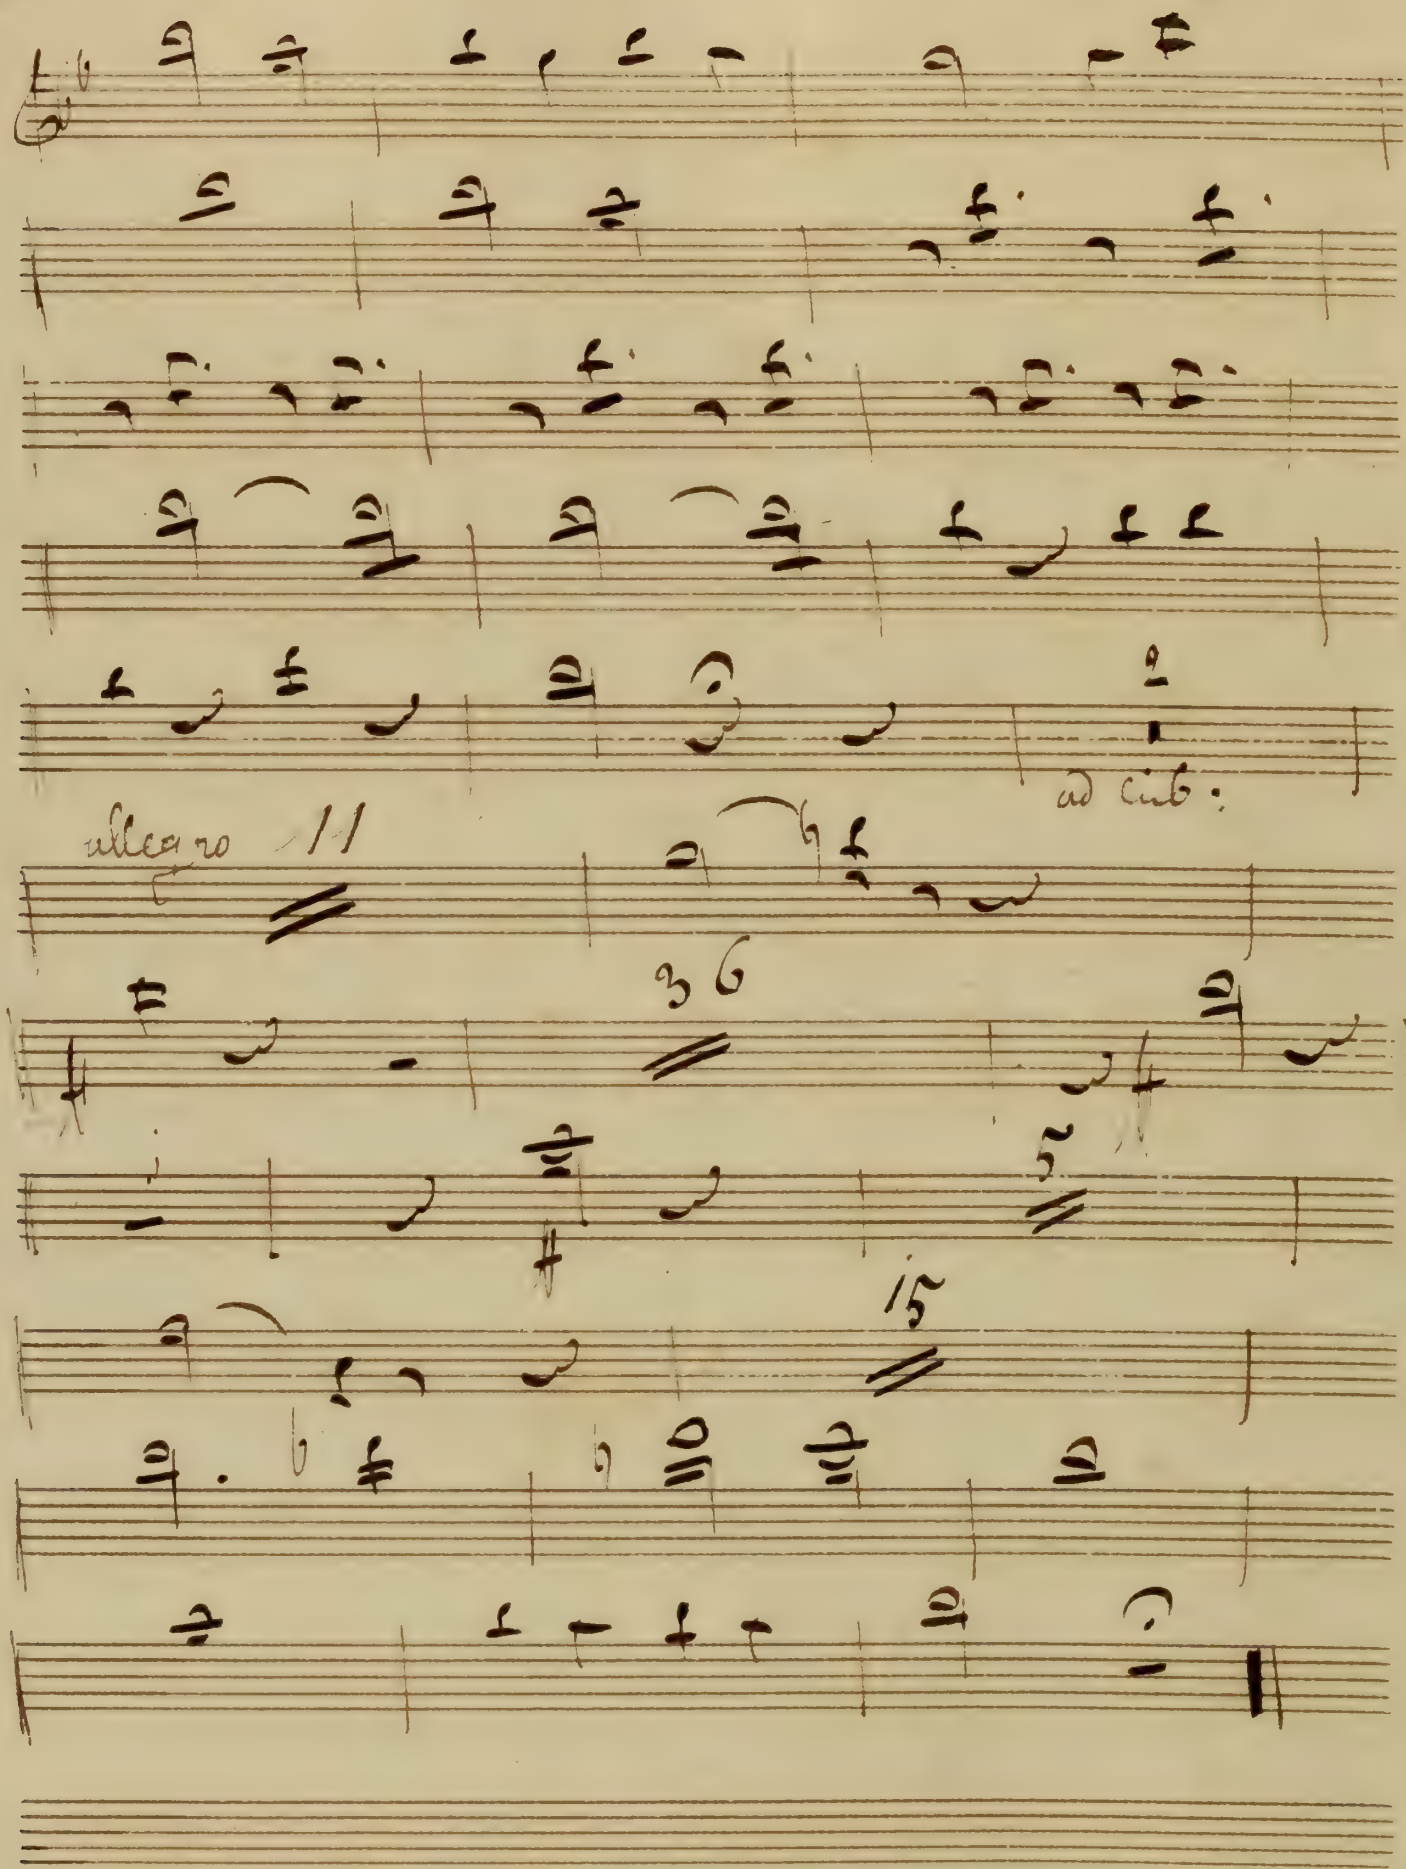 ad lib:
allegro 11
36
5
15